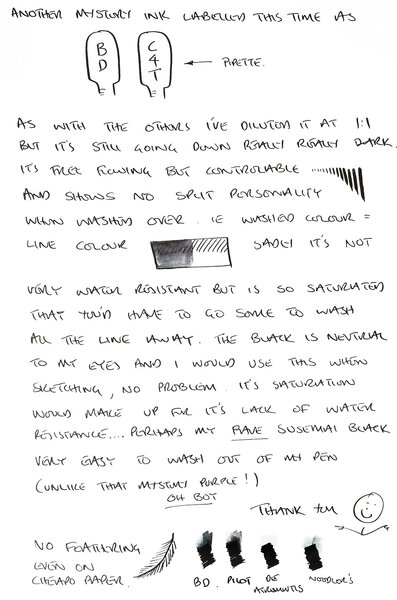 ANOTHER MYSTERY INK LABELLED THIS TIME AS
BD C4T ← PIPETTE.
AS WITH THE OTHERS I'VE DILUTED IT AT 1:1
BUT IT'S STILL GOING DOWN REALLY REALLY DARK.
IT'S FREE FLOWING BUT CONTROLLABLE
AND SHOWS NO SPLIT PERSONALITY
WHEN WASHED OVER. IE WASHED COLOUR =
LINE COLOUR SADLY IT'S NOT
VERY WATER RESISTANT BUT IS SO SATURATED
THAT YOU'D HAVE TO GO SOME TO WASH
ALL THE LINE AWAY. THE BLACK IS NEUTRAL
TO MY EYES AND I WOULD USE THIS WHEN
SKETCHING, NO PROBLEM. IT'S SATURATION
WOULD MAKE UP FOR IT'S LACK OF WATER
RESISTANCE.... PERHAPS MY FAVE SUSEMAI BLACK
VERY EASY TO WASH OUT OF MY PEN
(UNLIKE THAT MYSTERY PURPLE!)
OH BOY
THANK YOU
NO FEATHERING
EVEN ON
CHEAPO PAPER.
BD. PILOT DE ATRAMENTIS NOODLER'S